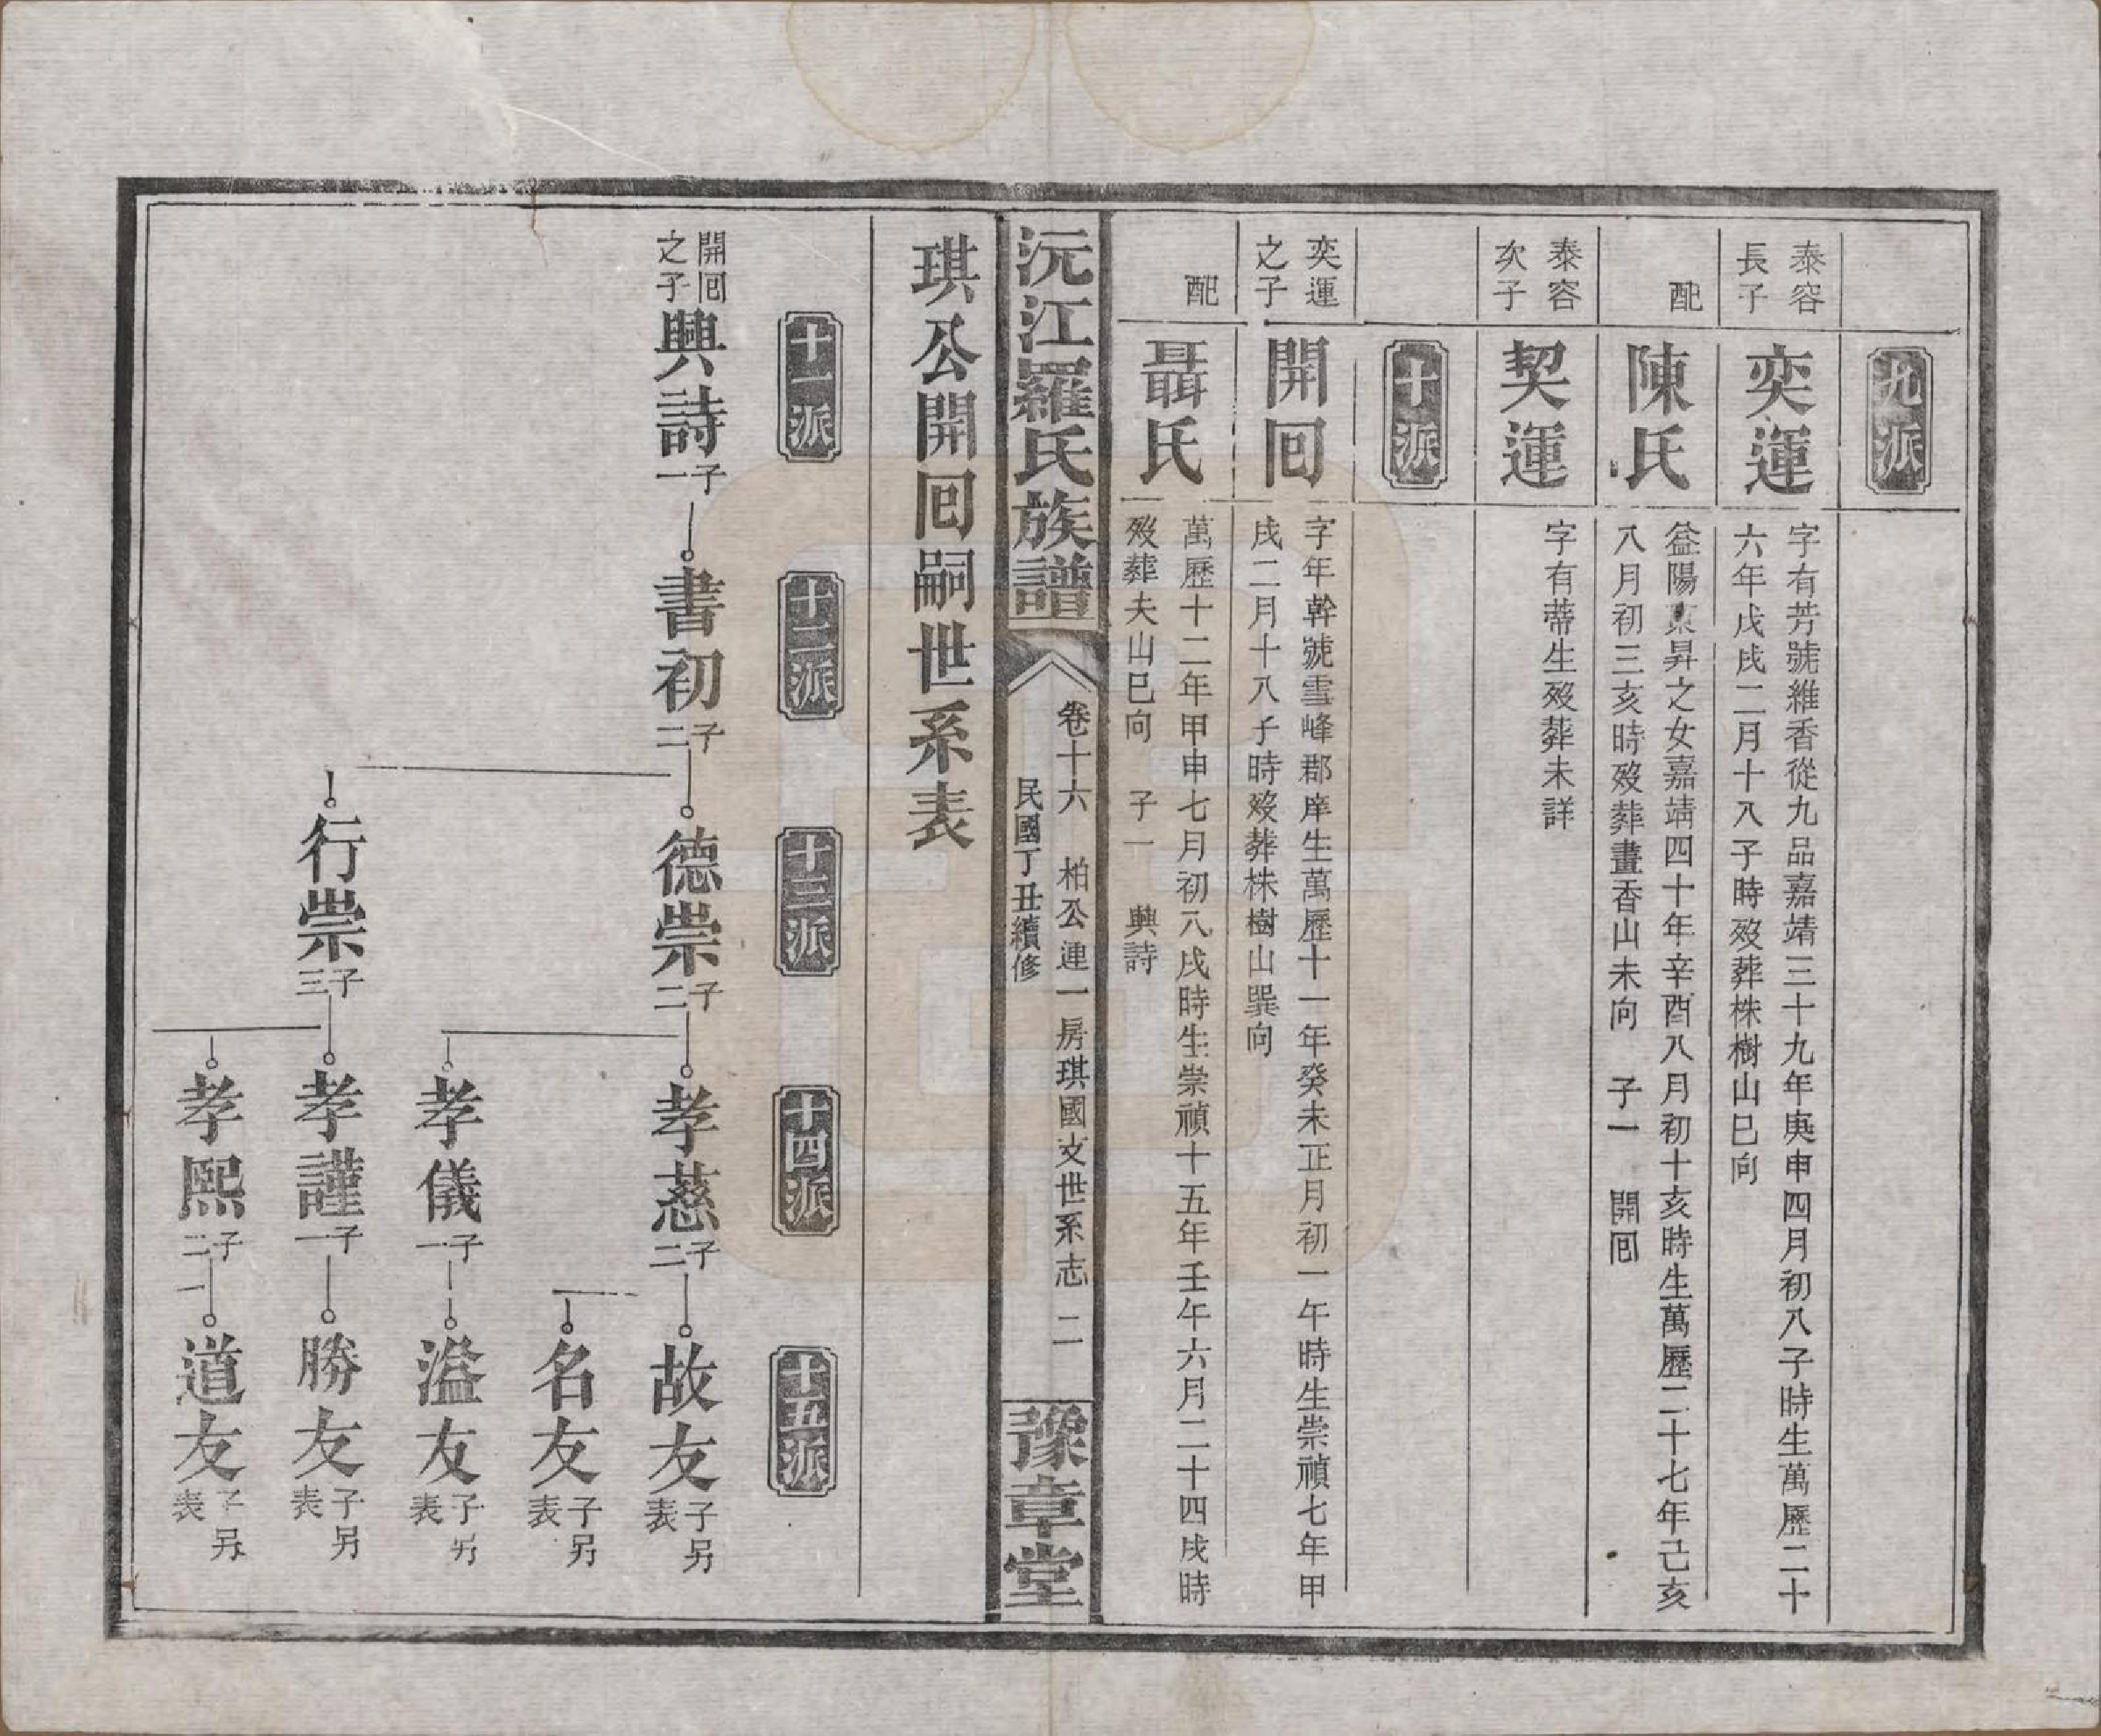 九派
泰容長子
奕運
字有芳號維香從九品嘉靖三十九年庚申四月初八子時生萬歷二十
六年戊戌二月十八子時歿葬株樹山巳向
配
陳氏
益陽東昇之女嘉靖四十年辛酉八月初十亥時生萬歷二十七年己亥
八月初三亥時歿葬畫香山未向　子一　開囘
泰容次子
契運
字有蒂生歿葬未詳
十派
奕運之子
開囘
字年幹號雪峰郡庠生萬歷十一年癸未正月初一午時生崇禎七年甲
戌二月十八子時歿葬株樹山巽向
配
聶氏
萬歷十二年甲申七月初八戌時生崇禎十五年壬午六月二十四戌時
歿葬夫山巳向　子一　興詩
沅江羅氏族譜
卷十六　柏公連一房琪國文世系志　二
民國丁丑續修
豫章堂
琪公開囘嗣世系表
十一派
十二派
十三派
十四派
十五派
開囘之子
興詩 子一
書初 子二
德崇 子二
孝慈 子二
故友 子另表
名友 子另表
孝儀 子一
溢友 子另表
行崇 子三
孝謹 子一
勝友 子另表
孝熙 子二
道友 子另表